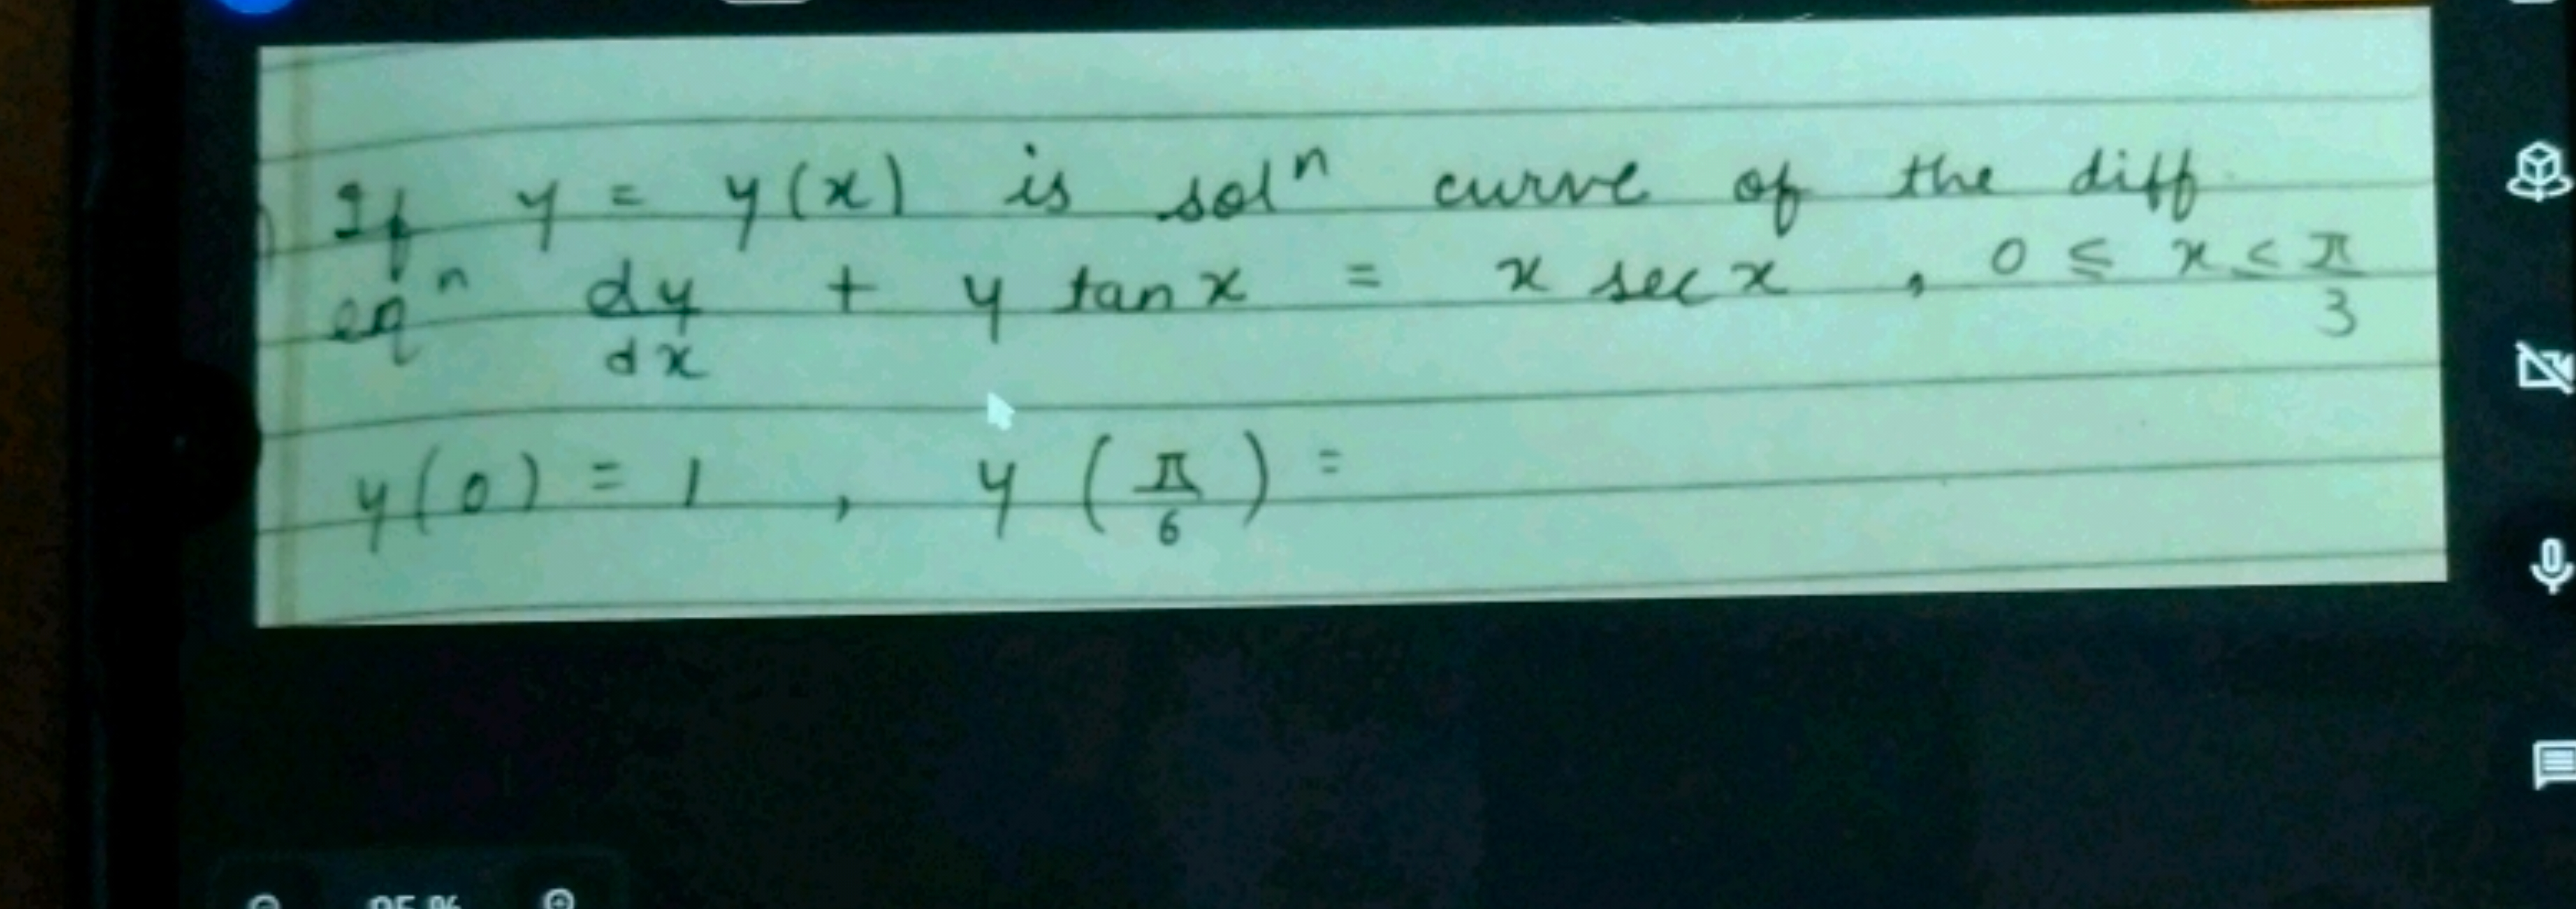 If y = y(x) is solⁿ curve of the diff.
eqⁿ dy/dx + y tan x = x sec x , 0 ≤ x ≤ π/3
y(0) = 1 , y (π/6) =